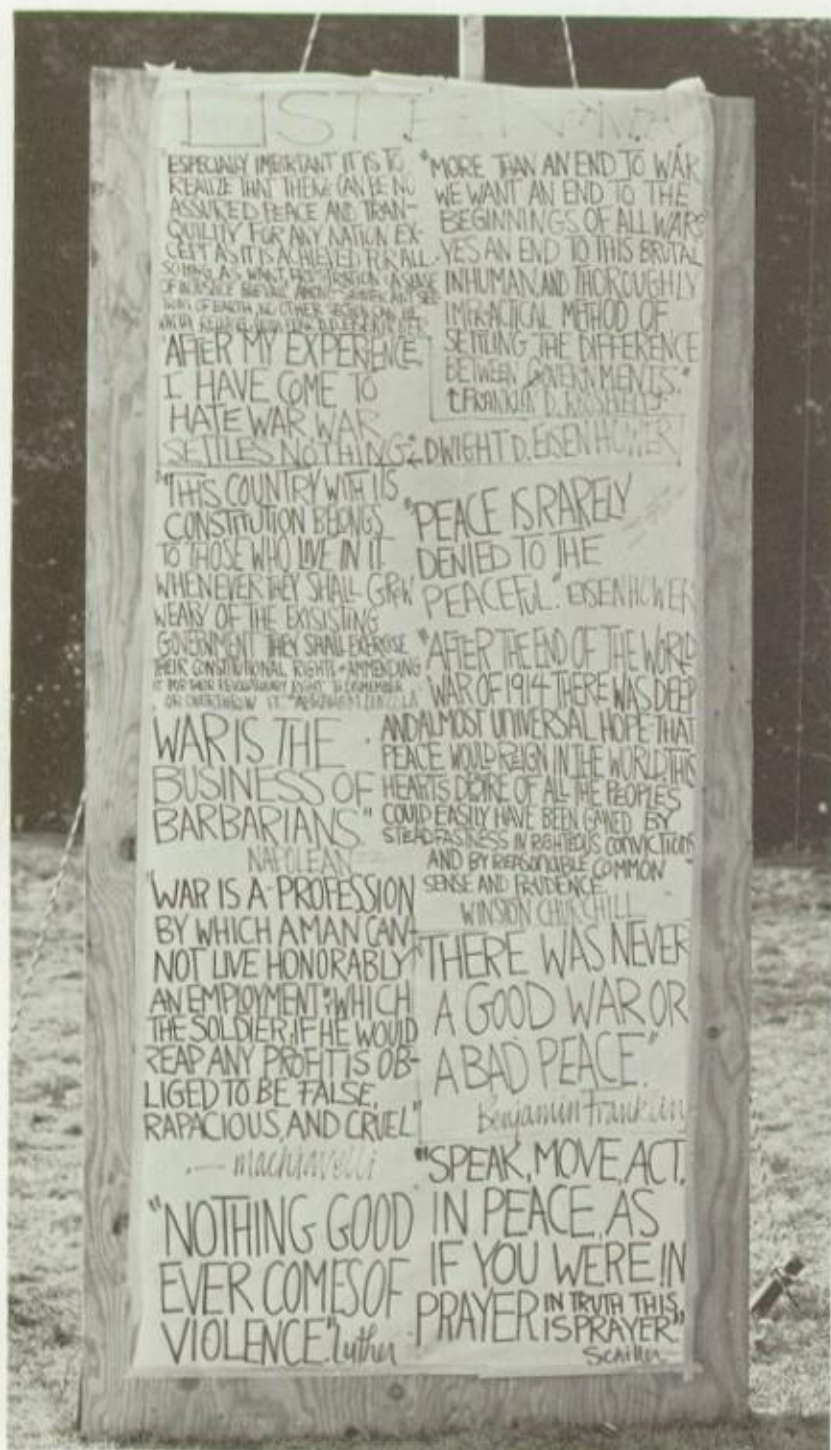 LISTEN
"ESPECIALLY IMPORTANT IT IS TO
REALIZE THAT THERE CAN BE NO
ASSURED PEACE AND TRAN-
QUILITY FOR ANY NATION EX-
CEPT AS IT IS ACHIEVED FOR ALL.
SO LONG AS WANT, FRUSTRATION
"AFTER MY EXPERIENCE
I HAVE COME TO
HATE WAR. WAR
SETTLES NOTHING" DWIGHT D. EISENHOWER
"THIS COUNTRY WITH ITS
CONSTITUTION BELONGS
TO THOSE WHO LIVE IN IT.
WHENEVER THEY SHALL GROW
WEARY OF THE EXISISTING
GOVERNMENT THEY SHALL EXERSISE
THEIR CONSTITUTIONAL RIGHTS AMMENDING
IT FOR THEIR REVOLUTIONARY RIGHT TO DISMEMBER
OR OVERTHROW IT." ABRAHAM LINCOLN
WAR IS THE
BUSINESS OF
BARBARIANS"
NAPOLEAN
"WAR IS A PROFESSION
BY WHICH A MAN CAN-
NOT LIVE HONORABLY
AN EMPLOYMENT WHICH
THE SOLDIER, IF HE WOULD
REAP ANY PROFIT IS OB-
LIGED TO BE FALSE,
RAPACIOUS, AND CRUEL"
— machiavelli
"NOTHING GOOD
EVER COMES OF
VIOLENCE." Luther
"MORE THAN AN END TO WAR
WE WANT AN END TO THE
BEGINNINGS OF ALL WARS
YES AN END TO THIS BRUTAL
INHUMAN AND THOROUGHLY
IMPRACTICAL METHOD OF
SETTLING THE DIFFERENCE
BETWEEN GOVERNMENTS."
FRANKLIN D. ROOSEVELT
"PEACE IS RARELY
DENIED TO THE
PEACEFUL." EISENHOWER
"AFTER THE END OF THE WORLD
WAR OF 1914 THERE WAS DEEP
AND ALMOST UNIVERSAL HOPE THAT
PEACE WOULD REIGN IN THE WORLD. THIS
HEARTS DESIRE OF ALL THE PEOPLES
COULD EASILY HAVE BEEN GAINED BY
STEADFASTNESS IN RIGHTEOUS CONVICTIONS
AND BY REASONABLE COMMON
SENSE AND PRUDENCE"
WINSTON CHURCHILL
"THERE WAS NEVER
A GOOD WAR OR
A BAD PEACE."
Benjamin Franklin
"SPEAK, MOVE, ACT,
IN PEACE, AS
IF YOU WERE IN
PRAYER IN TRUTH THIS,
IS PRAYER."